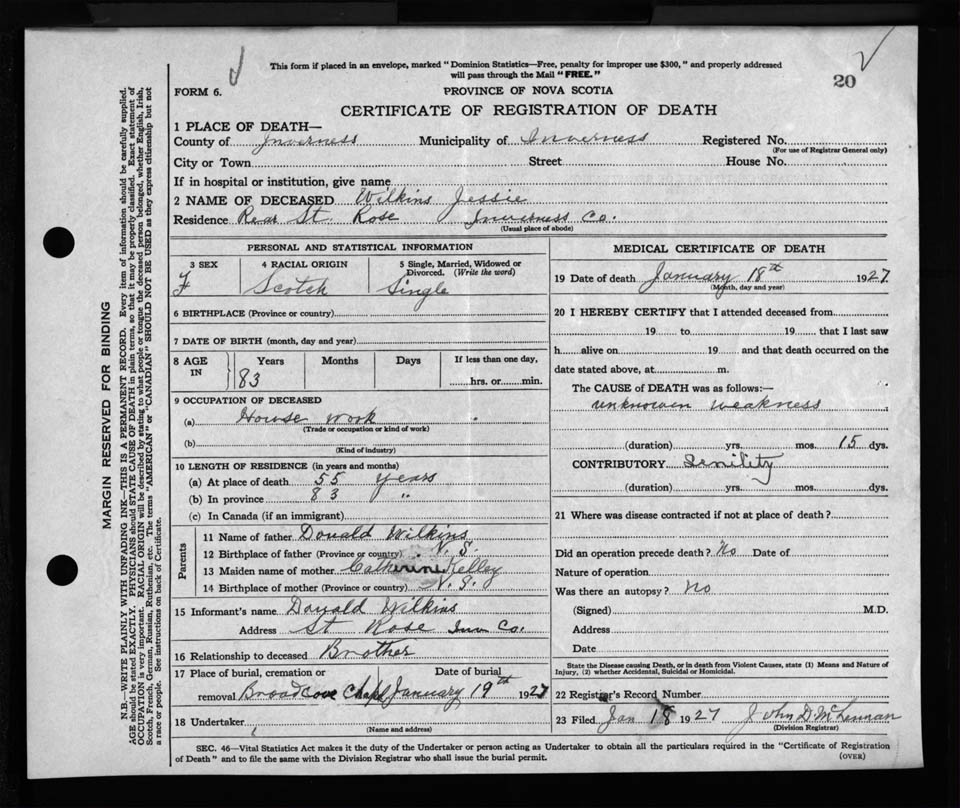 This form if placed in an envelope, marked "Dominion Statistics—Free, penalty for improper use $300," and properly addressed
will pass through the Mail "FREE."
20
FORM 6.
PROVINCE OF NOVA SCOTIA
CERTIFICATE OF REGISTRATION OF DEATH
1 PLACE OF DEATH—
County of Inverness Municipality of Inverness Registered No.
(For use of Registrar General only)
City or Town Street House No.
If in hospital or institution, give name
2 NAME OF DECEASED Wilkins Jessie
Residence Rear St Rose Inverness Co.
(Usual place of abode)
PERSONAL AND STATISTICAL INFORMATION
3 SEX 4 RACIAL ORIGIN 5 Single, Married, Widowed or
Divorced. (Write the word)
F Scotch Single
6 BIRTHPLACE (Province or country)
7 DATE OF BIRTH (month, day and year)
8 AGE IN Years Months Days If less than one day,
83 hrs. or min.
9 OCCUPATION OF DECEASED
(a) House work
(Trade or occupation or kind of work)
(b)
(Kind of industry)
10 LENGTH OF RESIDENCE (in years and months)
(a) At place of death 55 years
(b) In province 83 "
(c) In Canada (if an immigrant)
Parents
11 Name of father Donald Wilkins
12 Birthplace of father (Province or country) N. S.
13 Maiden name of mother Catherine Kelley
14 Birthplace of mother (Province or country) N. S.
15 Informant's name Donald Wilkins
Address St Rose Inv Co.
16 Relationship to deceased Brother
17 Place of burial, cremation or Date of burial
removal Broadcove Chapel January 19th 1927
18 Undertaker
(Name and address)
MEDICAL CERTIFICATE OF DEATH
19 Date of death January 18th 1927
(Month, day and year)
20 I HEREBY CERTIFY that I attended deceased from
19 to 19 that I last saw
h alive on 19 and that death occurred on the
date stated above, at m.
The CAUSE of DEATH was as follows:—
unknown weakness
(duration) yrs. mos. 15 dys.
CONTRIBUTORY Senility
(duration) yrs. mos. dys.
21 Where was disease contracted if not at place of death?
Did an operation precede death? No Date of
Nature of operation
Was there an autopsy? No
(Signed) M.D.
Address
Date
State the Disease causing Death, or in death from Violent Causes, state (1) Means and Nature of
Injury, (2) whether Accidental, Suicidal or Homicidal.
22 Registrar's Record Number
23 Filed Jan 18 1927 John D McLennan
(Division Registrar)
SEC. 46—Vital Statistics Act makes it the duty of the Undertaker or person acting as Undertaker to obtain all the particulars required in the "Certificate of Registration
of Death" and to file the same with the Division Registrar who shall issue the burial permit.
(OVER)
MARGIN RESERVED FOR BINDING
N.B.—WRITE PLAINLY WITH UNFADING INK—THIS IS A PERMANENT RECORD. Every item of information should be carefully supplied.
AGE should be stated EXACTLY. PHYSICIANS should STATE CAUSE OF DEATH in plain terms, so that it may be properly classified. Exact statement of
OCCUPATION is very important. RACIAL ORIGIN will be described by stating to what people or tongue the deceased person belonged, whether English, Irish,
Scotch, French, German, Russian, Ruthenian, etc. The terms "AMERICAN" or "CANADIAN" SHOULD NOT BE USED as they express citizenship but not
a race or people. See instructions on back of Certificate.